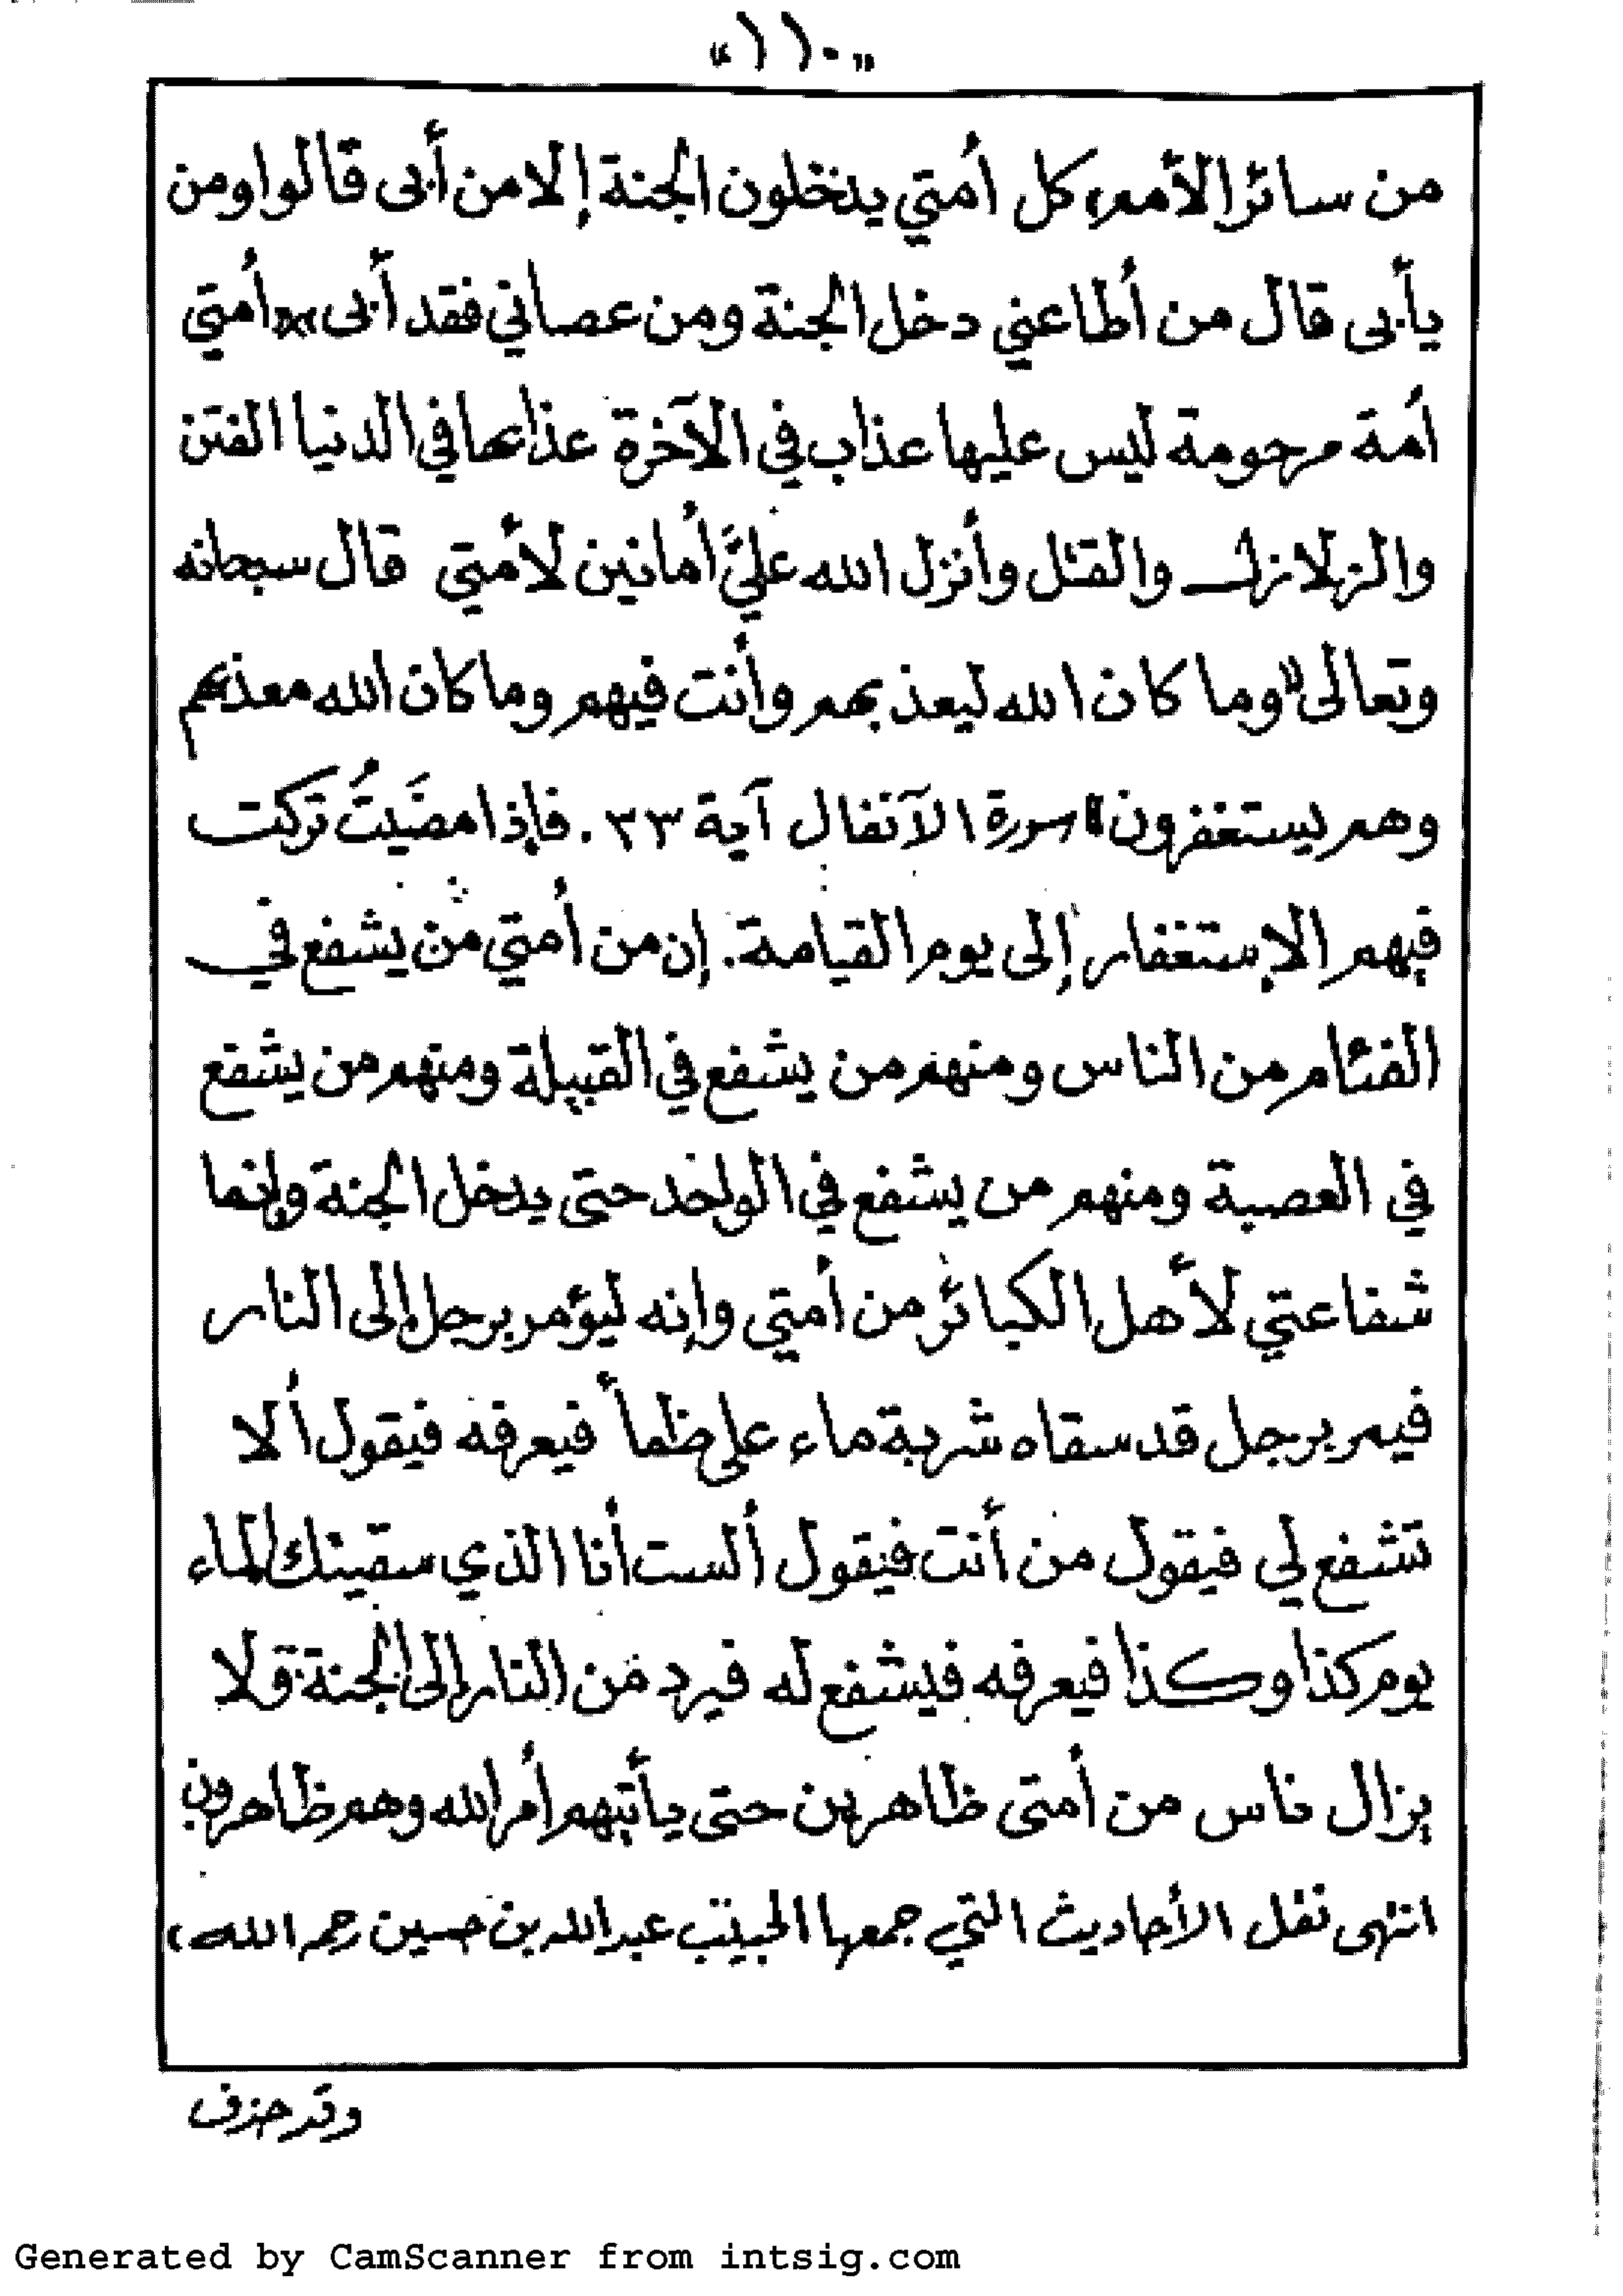 «١١٠»
من سائر الأمم، كل أمتي يدخلون الجنة إلا من أبى قالوا ومن
يأبى قال من أطاعني دخل الجنة ومن عصاني فقد أبى * أمتي
أمة مرحومة ليس عليها عذاب في الآخرة عذابها في الدنيا الفتن
والزلازل والقتل وأنزل الله عليَّ أمانين لأمتي قال سبحانه
وتعالى "وما كان الله ليعذبهم وأنت فيهم وما كان الله معذبهم
وهم يستغفرون" سورة الآنفال آية ٣٣. فإذا مضَيتُ تركت
فيهم الإستغفار إلى يوم القيامة. إن من أمتي من يشفع في
الفئام من الناس ومنهم من يشفع في القبيلة ومنهم من يشفع
في العصبة ومنهم من يشفع في الواحد حتى يدخل الجنة وإنما
شفاعتي لأهل الكبائر من أمتي وإنه ليؤمر برجل إلى النار
فيمر برجل قد سقاه شربة ماء على ظمأ فيعرفه فيقول ألا
تشفع لي فيقول من أنت فيقول ألست أنا الذي سقيتك الماء
يوم كذا وكذا فيعرفه فيشفع له فيرد من النار إلى الجنة ولا
يزال ناس من أمتى ظاهرين حتى يأتيهم أمر الله وهم ظاهرون
انتهى نقل الأحاديث التي جمعها الحبيب عبدالله بن حسين رحمه الله،
وقد حذف
Generated by CamScanner from intsig.com